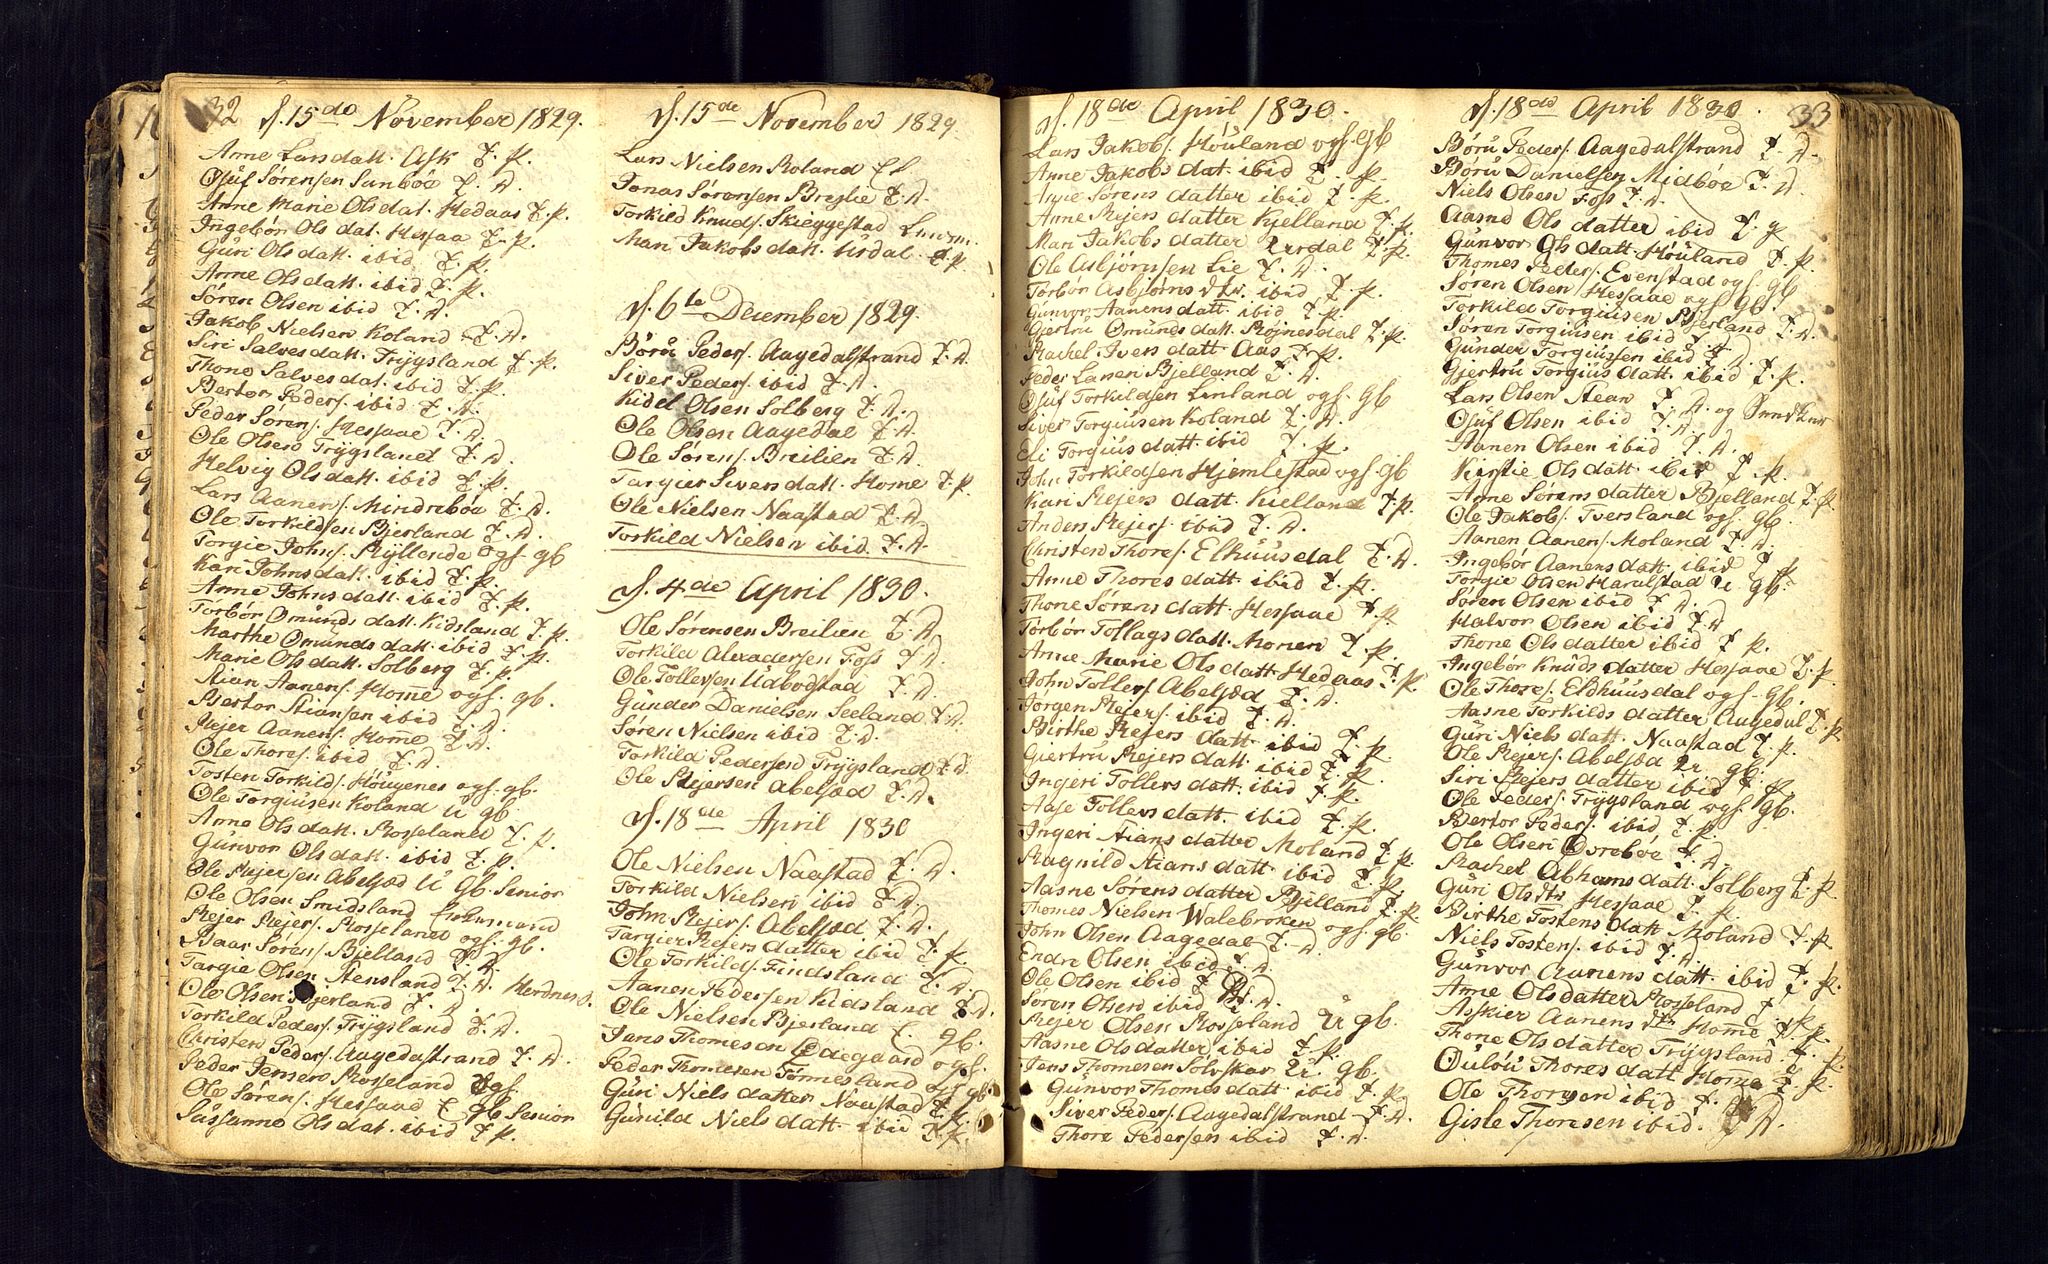 32 d. 15de November 1829.
Anne Larsdatt. Ask T. P.
Osuf Sørensen Sanbøe T. D.
Anne Marie Olsdat. Hedaas T. P.
Ingebør Olsdat. Hessaa T. P.
Guri Olsdatt. ibid T. P.
Anne Olsdatt. ibid T. P.
Søren Olsen ibid T. D.
Jakob Nielsen Koland T. D.
Siri Salvesdatt. Trÿgsland T. P.
Thone Salvesdat. ibid T. P.
Bertor Peders. ibid T. D.
Peder Sørens. Hessaae T. D.
Ole Olsen Trÿgsland T. D.
Helvig Olsdatt. ibid T. P.
Lars Aanens. Mindrebøe T. D.
Ole Torkildsen Bjerland T. D.
Torgie Johns. Rÿllende ogs. gb
Kari Johnsdatt. ibid T. P.
Anne Johnsdatt. ibid T. P.
Torbør Omundsdatt. Kidsland T. P.
Marthe Omundsdatt. ibid T. P.
Marie Olsdatt. Solberg T. P.
Aanens. Home ogs. gb.
Bertor Stiansen ibid T. D.
Rejer Aanens. Home T. D.
Ole Thores. ibid T. D.
Tosten Torkilds. Høÿgenes ogs. gb.
Ole Torguisen Koland U gb
Anne Olsdatt. Rosseland T. P.
Gunvor Olsdatt. ibid T. P.
Ole Rejersen Abelsæd U gb Senior
Ole Olsen Smidsland
Rejer Rejers. Rosseland ogs. gb.
Baar Sørens. Bjelland T. D.
Targie Olsen Stensland T. D.
Ole Olsen Bjerland T. D.
Torkild Peders. Trÿgsland T. D.
Christen Peders. Aagedalstrand T. D.
Peder Jensen Rosseland ogs.
Ole Sørens. Hessaae gb Senior
Sussanne Olsdat. ibid T. P.
d. 15de November 1829.
Lars Nielsen Roland
Jonas Sørensen Breilie T. D.
Torkild Knuds. Skieggestad
Mari Jakobsdatt. Urdal T. P
d. 6te December 1829.
Børu Peders. Aagedalstrand T. D.
Siver Peders. ibid T. D.
Kidel Olsen Solberg T. D.
Ole Olsen Aagedal T. D.
Ole Sørens. Breilien T. D.
Targier Siversdatt. Home T. P.
Ole Nielsen Naastad T. D.
Torkild Nielsen ibid T. D.
d. 4de April 1830.
Ole Sørensen Breilien T. D
Torkild Alexadersen Foss T. D.
Ole Tollevsen Udbodstad T. D.
Gunder Danielsen Seeland T. D.
Søren Nielsen ibid T. D.
Torkild Pedersen Trÿgsland T. D
Ole Rejersen Abelsæd T. D.
d. 18de April 1830
Ole Nielsen Naastad T. D.
Torkild Nielsen ibid T. D.
John Rejers. Abelsæd T. D.
Targier Rejers datter ibid T. P.
Ole Torkilds. Findsland T. D.
Aanen Pedersen Kidsland T. D.
Ole Nielsen Bjerland T. gb.
Jens Thomesen Ødegaard ogs.
Peder Thomesen Tønnesland ogs gb
Guri Niels datter Naastad T. P.
Gunild Niels datt. ibid T. P.
d. 18de April 1830.
Lars Jakobs. Høuland ogs. gb
Anne Jakobs dat. ibid T. P.
Anne Sørens datter ibid T. P.
Anne Rejers datter Kjelland T. P.
Mari Jakobs datter Urdal T. P.
Ole Asbjørnsen Lie T. D.
Torbør Asbjørns dtr. ibid T. P.
Gunvor Aanens datt. ibid T. P.
Gjertru Omunds datt. Røjnesdal T. P
Rachel Ivers datt. Aas T. P.
Peder Larsen Bjelland T. D.
Osuf Torkildsen Linland ogs. gb
Siver Torguisen Koland T. D.
Eli Torguis datt. ibid T. P.
John Torkildsen Hjemlestad ogs. gb
Kari Rejers datt. Kielland T. P.
Anders Rejers. ibid T. D.
Christen Thores. Elhuusdal T. D.
Anne Thores datt. ibid T. P.
Thone Sørens datt. Hessaae T. P.
Torbør Tollags datt. Monen T. P.
Anne Marie Ols datt. Hedaas T. P.
John Tollevs. Abelsæd T. D.
Jørgen Rejers. ibid T. D.
Birthe Rejers datt. ibid T. P.
Giertru Rejers datt. ibid T. P.
Ingeri Tollevs datt. ibid T. P.
Aase Tollevs datt. ibid T. P.
Ingeri Stians datter Moland T. P.
Ragnild Stians datt. ibid T. P.
Aasne Sørens datter Bjelland T. P.
Thomes Nielsen Walebroken ogs. gb.
John Olsen Aagedal T. D.
Endre Olsen ibid T. D.
Ole Olsen ibid T. D.
Søren Olsen ibid T. D.
Rejer Olsen Rosseland U gb.
Aasne Ols datter ibid T. P.
Jens Thomesen Sølvskar U gb.
Gunvor Thomes datt. ibid T. P.
Siver Peders. Aagedalstrand T. D.
Thore Pedersen ibid T. D.
d. 18de April 1830. 33
Børu Peders. Aagedalstrand T. D.
Børu Danielsen Midbøe T. D.
Niels Olsen Foss T. D.
Aasne Ols datter ibid T. P
Gunvor Ols datt. Høuland T. P.
Thomes Peders. Evenstad ogs. gb
Søren Olsen Hessaae ogs. gb.
Torkild Torguisen Bjerland T. D.
Søren Torguisen ibid T. D.
Gunder Torguissen ibid T. D.
Gjertru Torguis datt. ibid T. P.
Lars Olsen Stean T. D. og
Osuf Olsen ibid T. D.
Aanen Olsen ibid T. D.
Kirstie Ols datt. ibid T. P.
Anne Sørens datter Bjelland T. P.
Ole Jakobs. Tversland ogs. gb.
Aanen Aanens. Moland T. D.
Ingebør Aanens datt. ibid T. P.
Torgie Olsen Haralstad U gb.
Søren Olsen ibid T. D.
Halvor Olsen ibid T. D
Thone Ols datter ibid T. P.
Ingebør Knuds datter Hessaae T. P.
Ole Thores. Eldhuusdal ogs. gb.
Aasne Torkilds datter Aagedal T. P
Guri Niels datt. Naastad T. P.
Ole Rejers. Abelsæd U gb.
Siri Rejers datter ibid T. P.
Ole Peders. Trÿgsland ogs. gb.
Bertor Peders. ibid T. P.
Ole Olsen Øvrebøe T. D.
Rachel Abhams datt. Solberg T. P.
Guri Ols dtr Hessaae T. P.
Birthe Tostens datt. Moland T. P.
Niels Tostens. ibid T. D.
Gunvor Aanens datt. ibid T. P.
Anne Ols datter Rosseland T. P.
Asskier Aanens dtr Home T. P.
Thone Ols datter Trÿgsland T. P.
Oulou Thores datt. Home T. P.
Ole Thorsen ibid T.
Gisle Thoresen ibid. T. D.